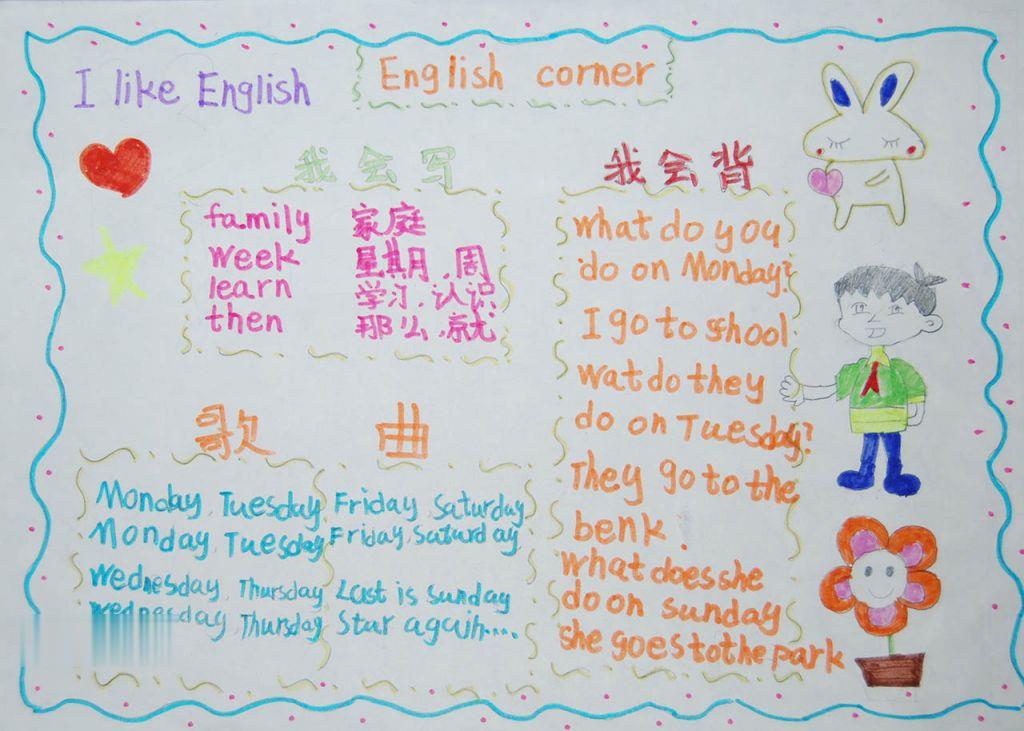 I like English
English corner
我会写
family 家庭
week 星期,周
learn 学习,认识
then 那么,就
我会背
what do you
do on Monday?
I go to school
wat do they
do on Tuesday?
They go to the
benk.
what does she
do on sunday
she goes to the park
歌曲
Monday, Tuesday Friday Saturday
Monday Tuesday Friday, Saturday
Wednesday, Thursday Last is Sunday
wednesday, Thursday Star again....